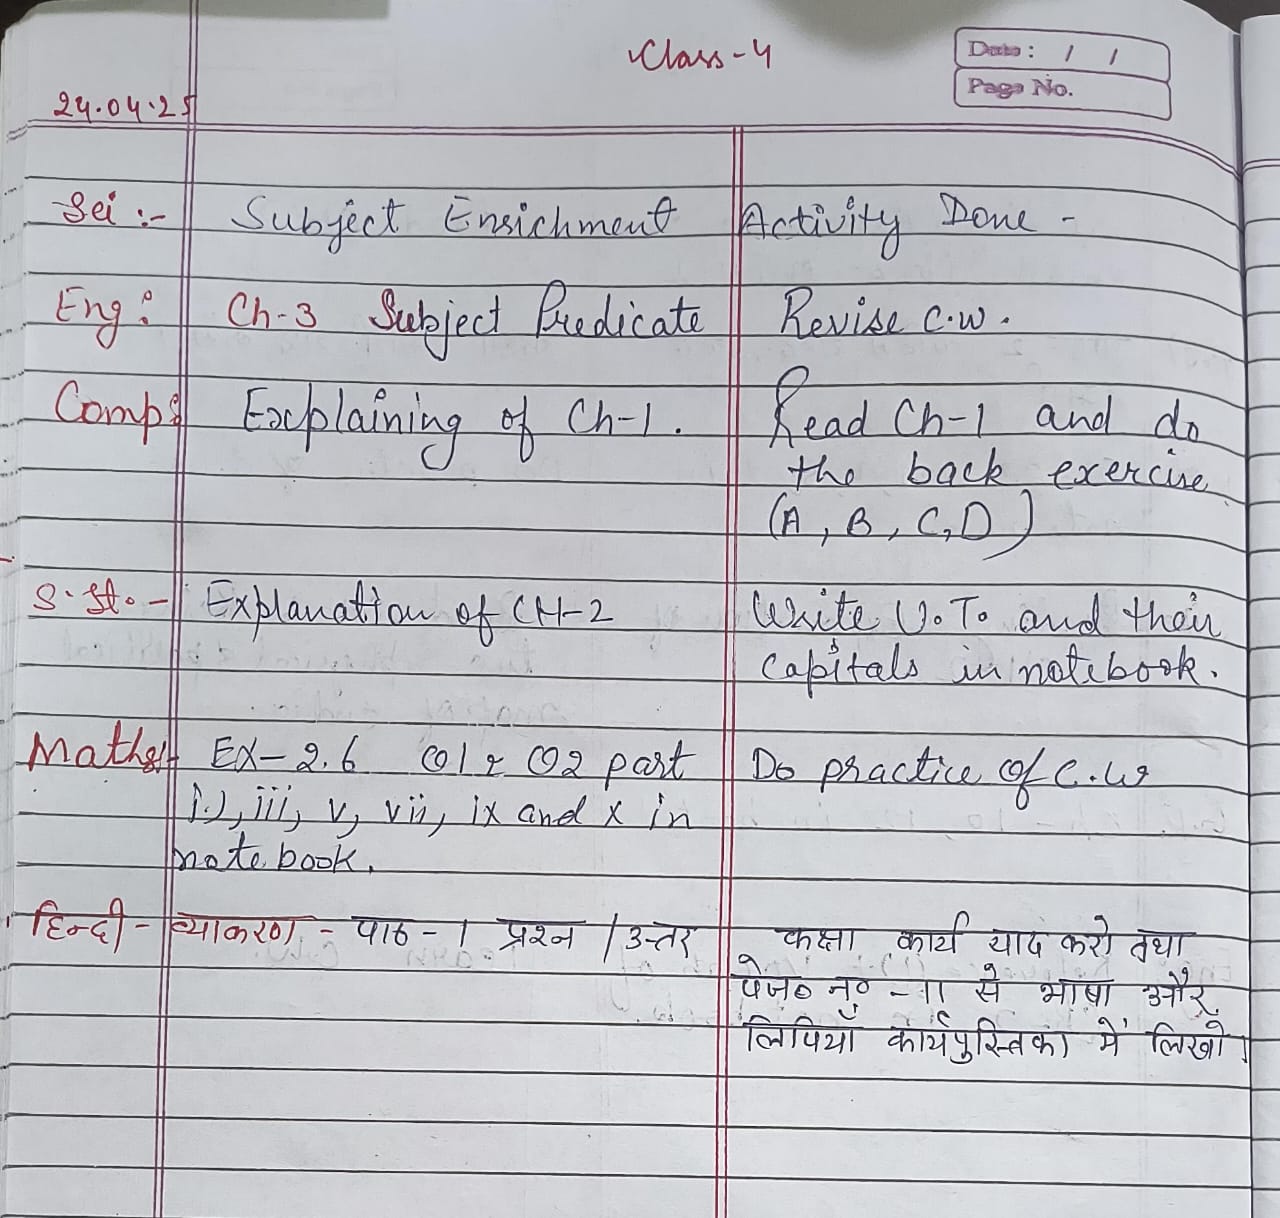 Class-4
Date: / /
Page No.
24.04.25
Sci :- Subject Enrichment Activity Done -
Eng: Ch-3 Subject Predicate Revise c.w.
Comp: Explaining of Ch-1. Read Ch-1 and do
the back exercise
(A, B, C, D)
S.St. - Explanation of CH-2 Write U.T. and their
capitals in notebook.
Maths:- EX-2.6 Q1 & Q2 part Do practice of C.W
i.), iii, v, vii, ix and x in
notebook.
हिन्दी - व्याकरण - पाठ - 1 प्रश्न / उत्तर कक्षा कार्य याद करो तथा
पेज० नं० - 11 से भाषा और
लिपियाँ कार्यपुस्तिका में लिखो।